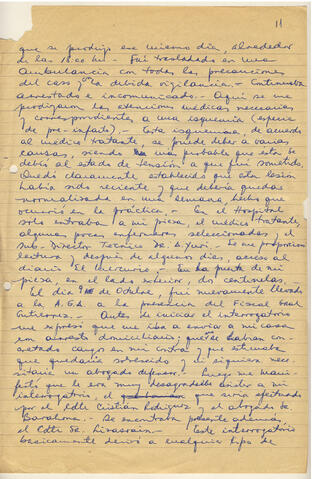 11
que se produjo ese mismo día, alrededor
de las 18:00 hrs.- Fui trasladado en una
Ambulancia con todas las precauciones
del caso y la debida vigilancia.- Continuaba
arrestado e incomunicado.- Aquí se me
prodigaron las atenciones médicas necesarias
y correspondientes a una isquemia (especie
de pre-infarto).- Esta isquemia, de acuerdo
al médico tratante, se puede deber a varias
causas, siendo una probable que esta se
debió al estado de tensión a que fui sometido.
Quedó claramente establecido que esta lesión
había sido reciente y que debería quedar
normalizada en una semana, hecho que
ocurrió en la práctica.- En el Hospital
solo entraba a mi pieza, el médico tratante,
algunas pocas enfermeras seleccionadas, y el
Sub-Director Técnico Sr. Yuri.- Se me proporcionó
lectura y después de algunos días, acceso al
diario El Mercurio.- En la puerta de mi
pieza, en el lado exterior, dos centinelas.
El día de Octubre, fui nuevamente llevado
a la A.G.A a la presencia del Fiscal Gral
Gutierrez.- Antes de iniciar el interrogatorio
me expresó que me iba a enviar a mi casa
en arresto domiciliario; que habían
cargos en mi contra y que estimaba
que quedaría sobreseído y ni siquiera nece-
sitaría un abogado defensor.- Luego me mani-
festó que le era muy desagradable asistir a mi
interrogatorio, el que sería efectuado
por el Cdte Cristián Rodriguez, y el abogado Sr.
Barahona.- Se encontraba presente además
el Cdte Sr. Lizasoain.- Este interrogatorio
básicamente derivó a cualquier tipo de